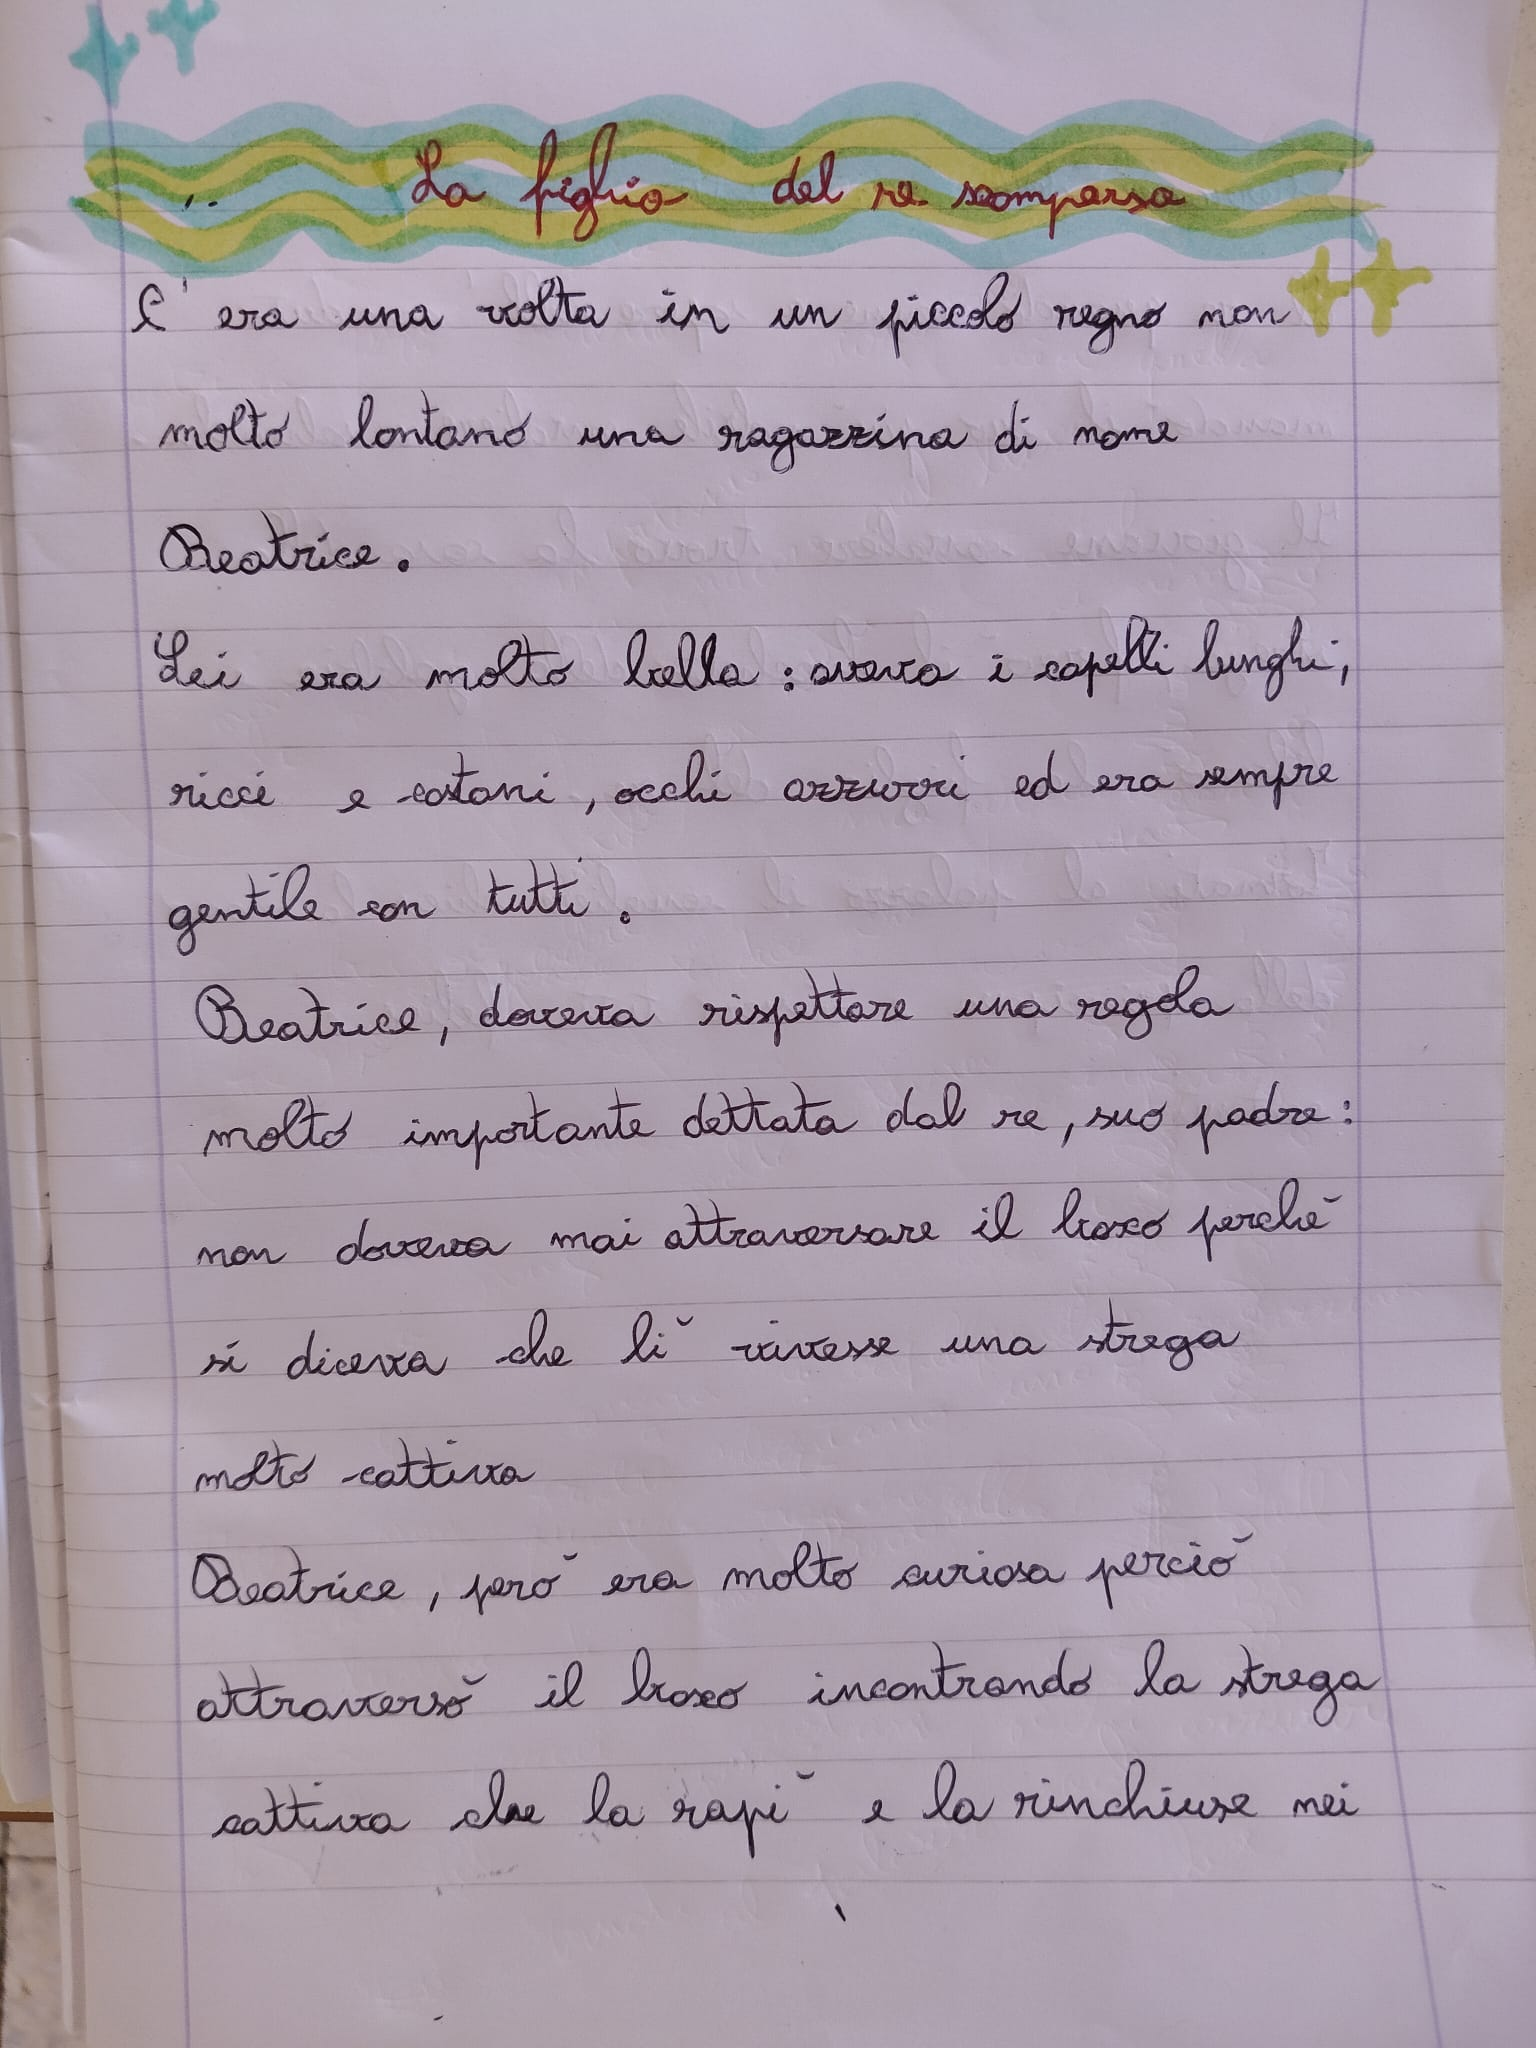 La figlia del re scomparsa
C'era una volta in un piccolo regno non
molto lontano una ragazzina di nome
Beatrice.
Lei era molto bella: aveva i capelli lunghi,
ricci e castani, occhi azzurri ed era sempre
gentile con tutti.
Beatrice, doveva rispettare una regola
molto importante dettata dal re, suo padre:
non doveva mai attraversare il bosco perchè
si diceva che lì vivesse una strega
molto cattiva
Beatrice, però era molto curiosa perciò
attraversò il bosco incontrando la strega
cattiva che la rapì e la rinchiuse nei